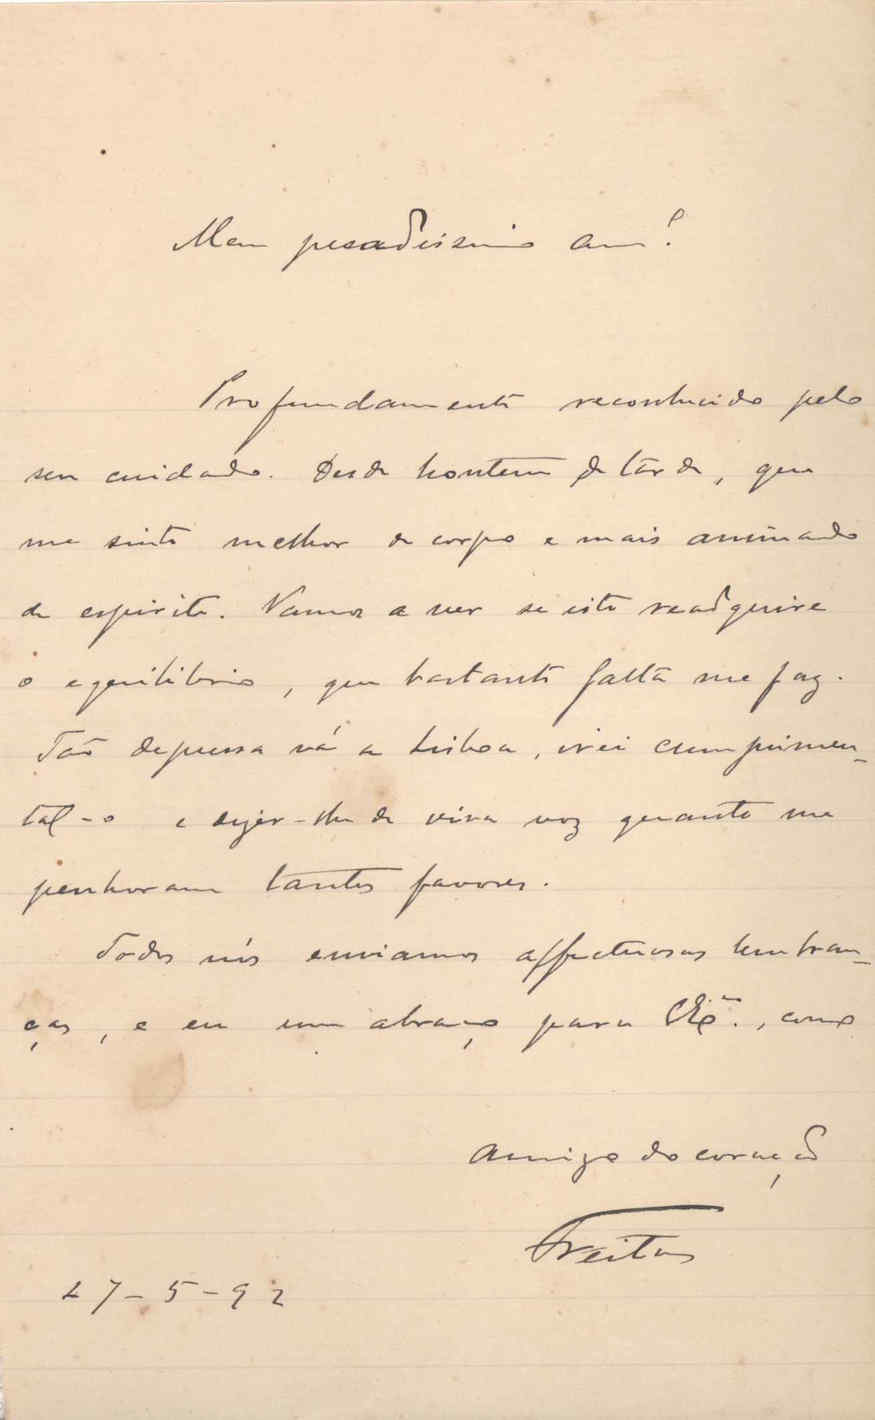 Meu presadissimo am.º
Profundamente reconhecido pelo
seu cuidado. Desde hontem de tarde, que
me sinto melhor de corpo e mais animado
de espirito. Vamos a ver se este readquire
o equilibrio, que bastante falta me faz.
Tão depressa vá a Lisboa, irei cumprimen-
tal-o e dizer-lhe de viva voz quanto me
penhoram tantos favores.
Todos nós enviamos affectuosas lembran-
ças, e eu um abraço para , como
Amigo do coração
Freitas
27-5-92